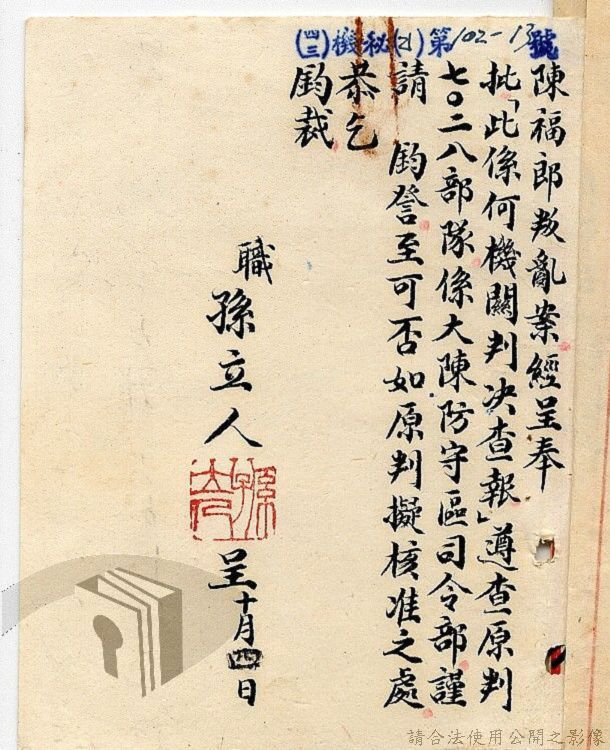 (四三)機秘(乙)第102-13號
陳福郎叛亂案經呈奉
批「此係何機關判決查報」遵查原判
七〇二八部隊係大陳防守區司令部謹
請 鈞詧至可否如原判擬核准之處
恭乞
鈞裁
職 孫立人 呈 十月四日
請合法使用公開之影像